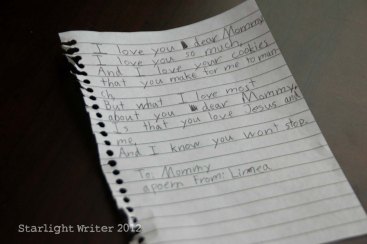 I love you dear Mommy
I love you so much,
And I love your cookies
that you make for me to mun-
ch,
But what I love most
about you dear Mommy,
Is that you love Jesus and
me,
And I know you wont stop
To: Mommy
a poem from: Linnea
Starlight Writer 2012